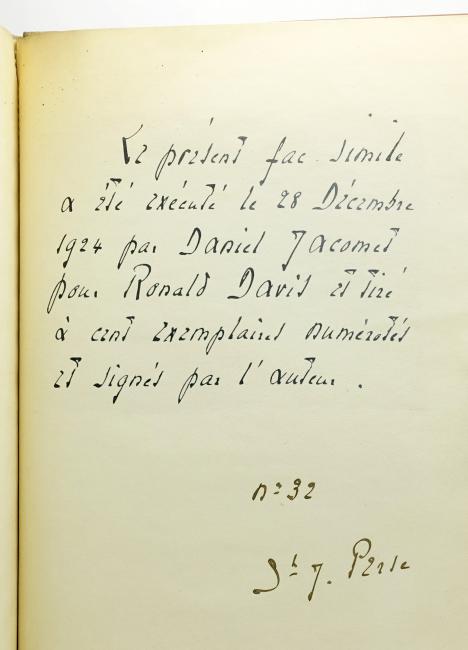 Le présent fac simile
a été exécuté le 28 Décembre
1924 par Daniel Jacomet
pour Ronald Davis et tiré
à cent exemplaires numérotés
et signés par l'auteur.
nº 32
St J. Perse